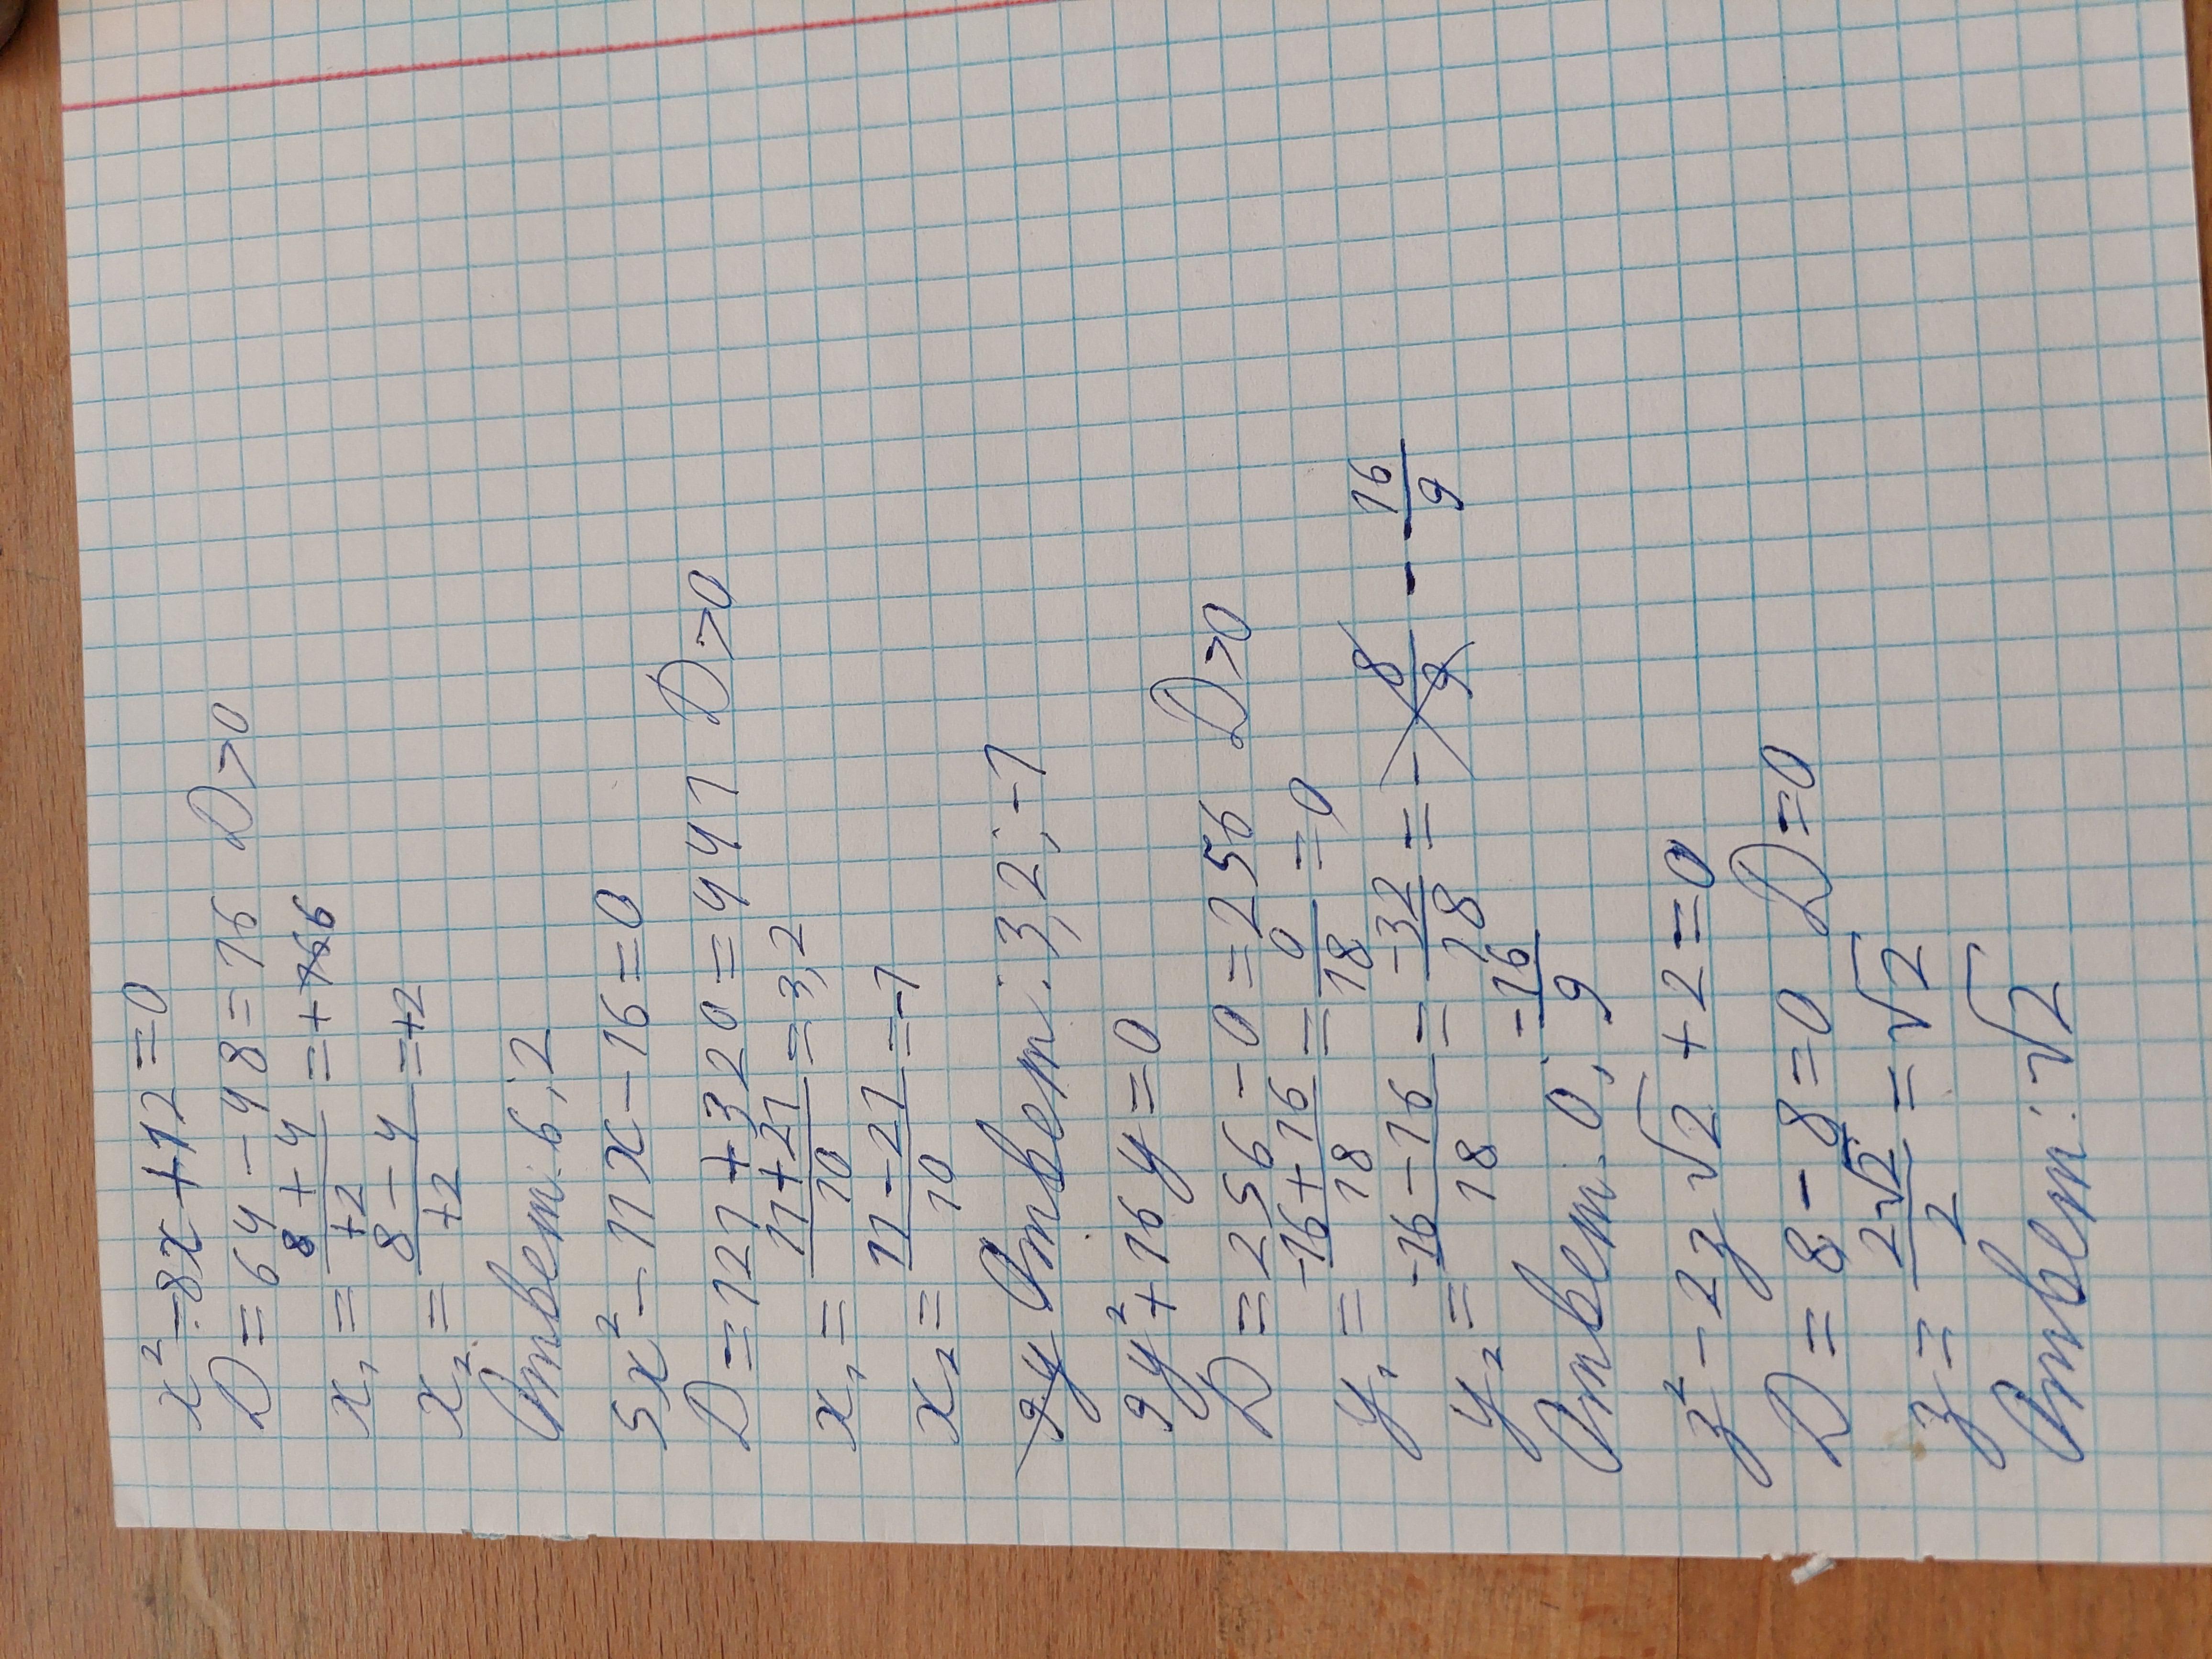 x² - 8x + 12 = 0
D = 64 - 48 = 16 D > 0
x₁ = (8 + 4)/(+2) = + 6
x₂ = (8 - 4)/(+2) = +2
Ответ: 6; 2
5x² - 11x - 16 = 0
D = 121 + 320 = 441 D > 0
x₁ = (11 + 21)/10 = 3,2
x₂ = (11 - 21)/10 = -1
9y Ответ: 3,2; -1
9y² + 16y = 0
D = 256 - 0 = 256 D > 0
y₁ = (-16 + 16)/18 = 0/18 = 0
y₂ = (-16 - 16)/18 = -32/18 = - 8/9 - - 16/9
Ответ: 0; -16/9
z² - 2z√2 + 2 = 0
D = 8 - 8 = 0 D = 0
z = 2√2/2 = √2
Ответ: √2